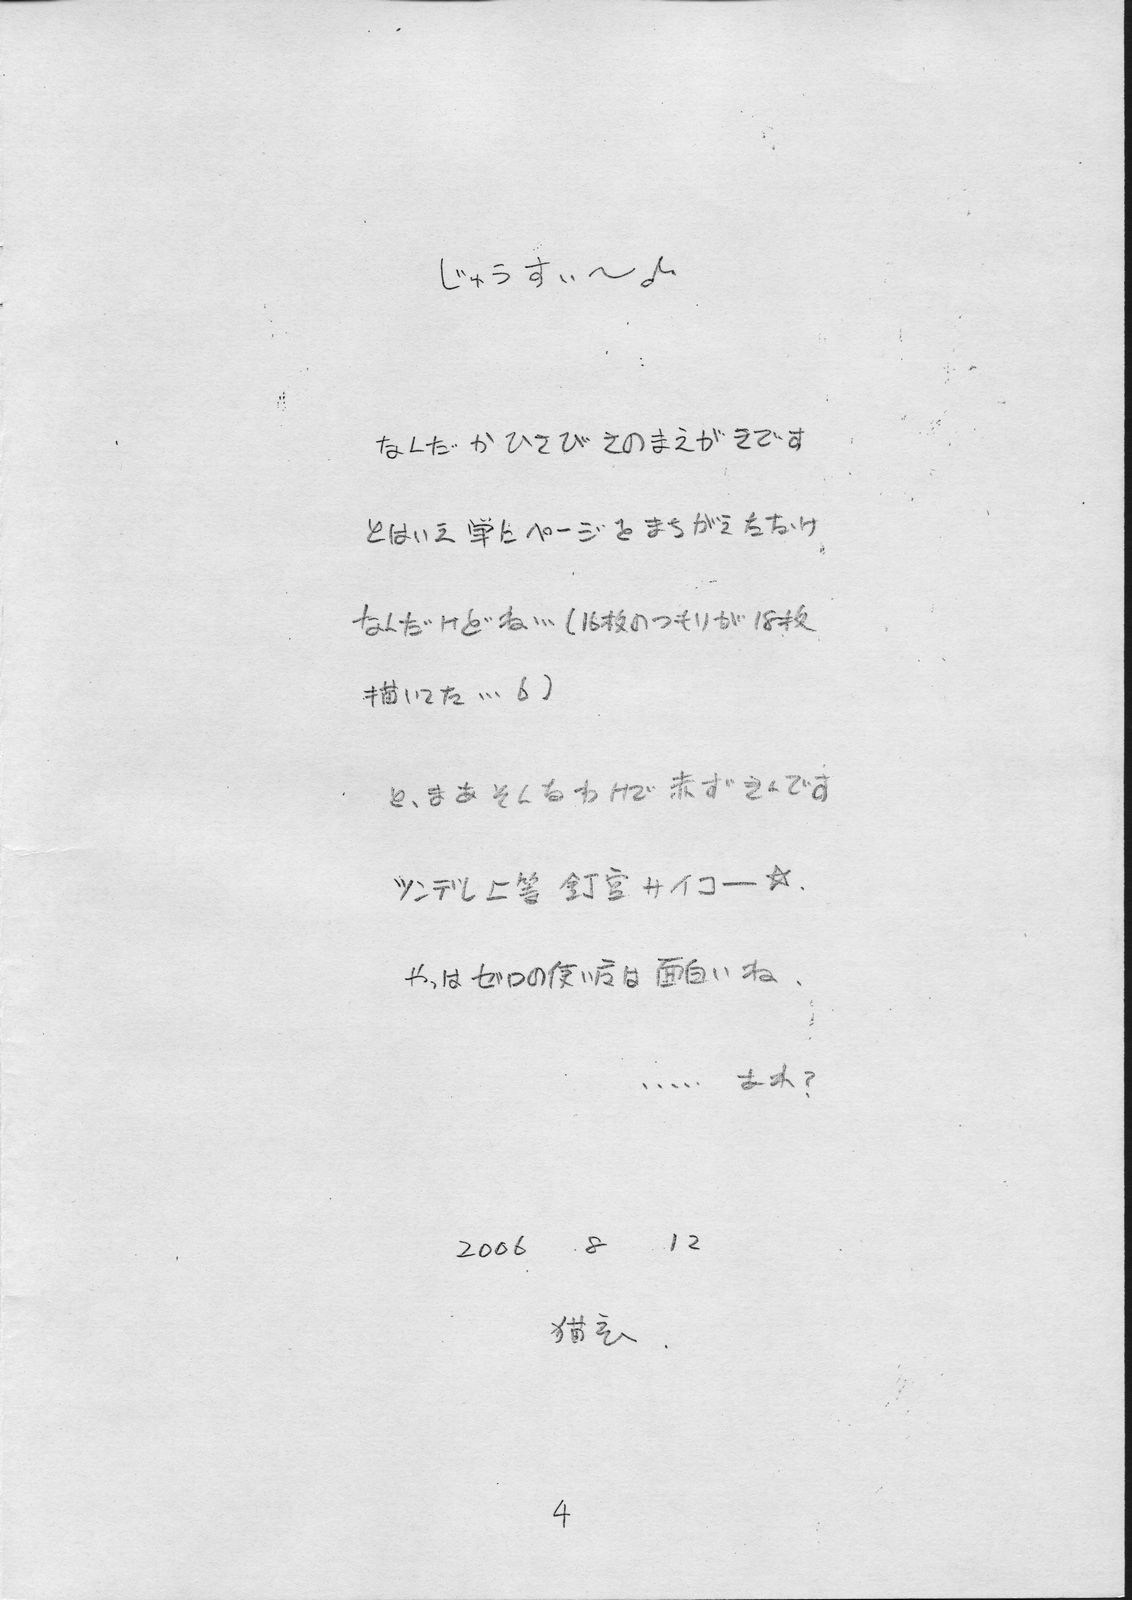 じゅうすぃ〜♪
なんだかひさびさのまえがきです
とはいえ単にページをまちがえただけ
なんだけどね…(16枚のつもりが18枚
描いてた…6)
と、まあそんなわけで赤ずきんです
ツンデレ上等 釘宮サイコー☆.
やっぱゼロの使い魔は面白いね、
..... あれ?
2006 8 12
猫玄.
4